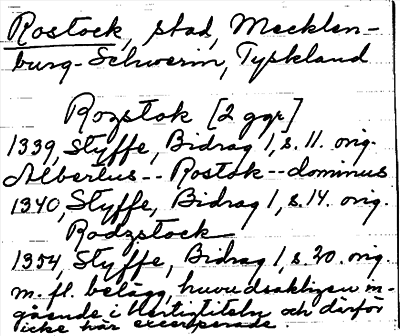 Rostock, stad, Mecklen-
burg-Schwerin, Tyskland
Rozstok [2 ggr]
1339, Styffe, Bidrag 1, s. 11. orig.
Albertus -- Rostok -- dominus
1340, Styffe, Bidrag 1, s. 14. orig.
Rodzstock
1354, Styffe, Bidrag 1, s. 20. orig.
m. fl. belägg, huvudsakligen in-
gående i hertigtiteln och därför
icke här excerperade